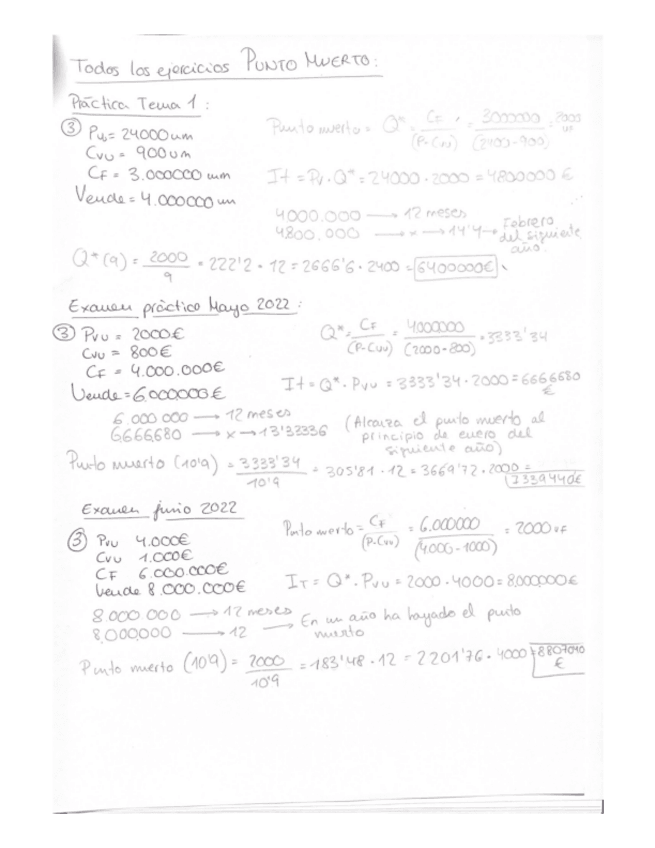 Todos los ejercicios PUNTO MUERTO:
Práctica Tema 1:
③ Pvu = 24000 um
Cvu = 900 um
CF = 3.000000 um
Vende = 4.000000 um
Punto muerto = Q* = CF / (P-Cvu) = 3000000 / (2400-900) = 2000 uf
It = Pv · Q* = 24000 · 2000 = 4800000 €
4000.000 → 12 meses
4800.000 → x → 14'4 → Febrero del siguiente año.
Q*(9) = 2000 / 9 = 222'2 · 12 = 2666'6 · 2400 = 6400000€
Examen práctico Mayo 2022:
③ Pvu = 2000€
Cvu = 800€
CF = 4.000.000€
Vende = 6.000000€
Q* = CF / (P-Cvu) = 4000000 / (2000-800) = 3333'34
It = Q* · Pvu = 3333'34 · 2000 = 6666680 €
6.000 000 → 12 meses
6666680 → x → 13'33336
(Alcanza el punto muerto al principio de enero del siguiente año)
Punto muerto (10'9) = 3333'34 / 10'9 = 305'81 · 12 = 3669'72 · 2000 = 7339440€
Examen junio 2022
③ Pvu 4.000€
Cvu 1.000€
CF 6.000.000€
Vende 8.000.000€
Punto muerto = CF / (P-Cvu) = 6.000000 / (4000-1000) = 2000 uf
IT = Q* · Pvu = 2000 · 4000 = 8.000000€
8.000 000 → 12 meses
8.000000 → 12 → En un año ha hayado el punto muerto
Punto muerto (10'9) = 2000 / 10'9 = 183'48 · 12 = 2201'76 · 4000 = 8807040 €